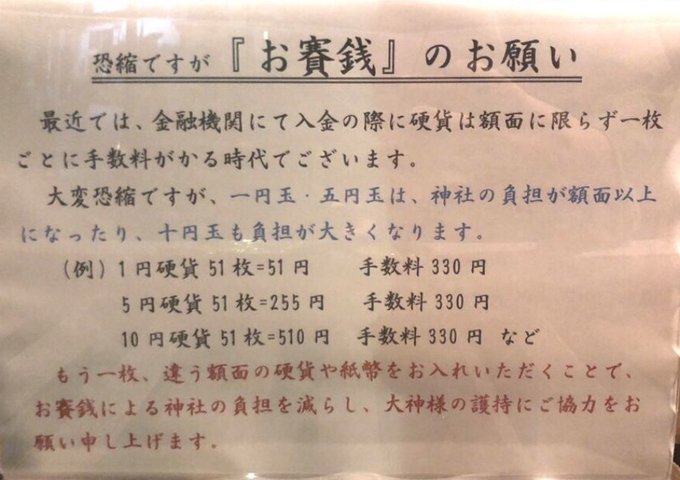 恐縮ですが『お賽銭』のお願い
最近では、金融機関にて入金の際に硬貨は額面に限らず一枚
ごとに手数料がかる時代でございます。
大変恐縮ですが、一円玉・五円玉は、神社の負担が額面以上
になったり、十円玉も負担が大きくなります。
(例)1円硬貨 51枚=51円 手数料 330円
5円硬貨 51枚=255円 手数料 330円
10円硬貨 51枚=510円 手数料 330円 など
もう一枚、違う額面の硬貨や紙幣をお入れいただくことで、
お賽銭による神社の負担を減らし、大神様の護持にご協力をお
願い申し上げます。